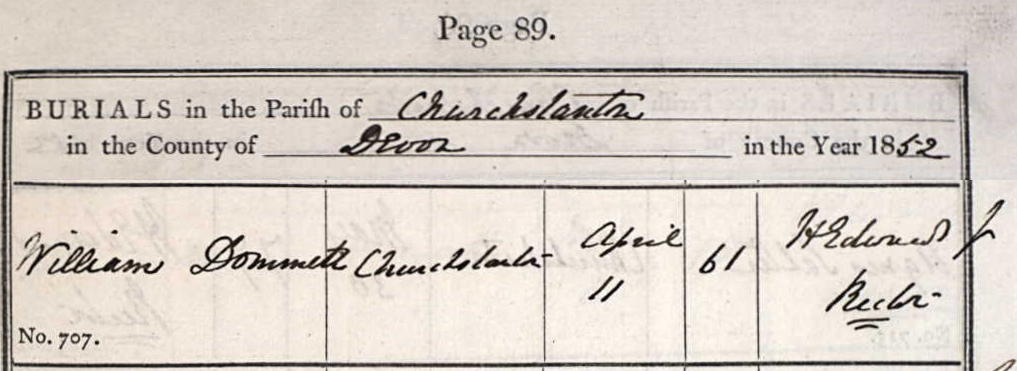 Page 89.
BURIALS in the Parish of Churchstanton
in the County of Devon in the Year 1852
William Dommett Churchstanton April 11 61 H Edwards Rector
No. 707.